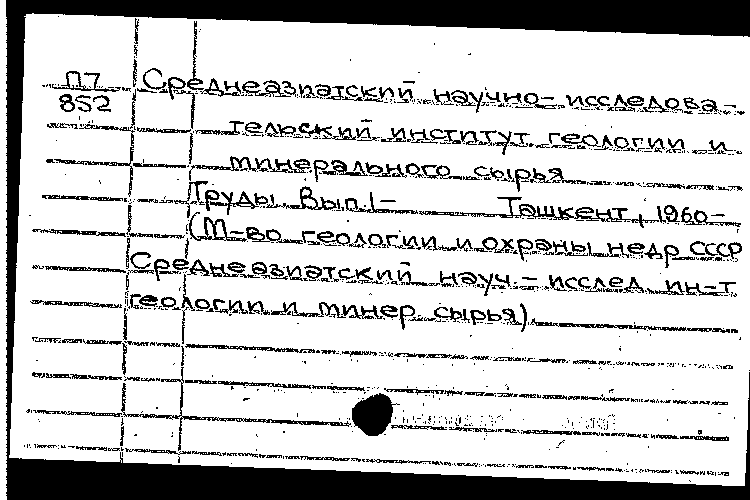 П7
852
Среднеазиатский научно-исследова-
тельский институт геологии и
минерального сырья
Труды. Вып.1- Ташкент, 1960-
(М-во геологии и охраны недр СССР
Среднеазиатский науч.-исслед. ин-т
геологии и минер. сырья).